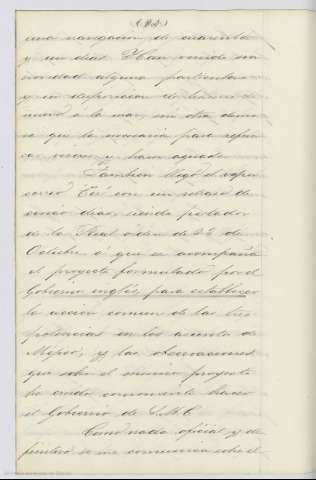 una navegacion de cuarenta
y un dias. Han venido sin
novedad alguna particular
y en disposicion de
á la mar, sin otra demo-
ra que la necesaria para refres-
car víveres y hacer aguada.
Tambien llegó el vapor
correo con un retraso de
cinco dias, siendo portador
de la Real órden de 22 de
Octubre á que se acompaña
el proyecto formulado por el
Gobierno inglés para establecer
la accion comun de las tres
potencias en los asuntos de
Méjico, y las observaciones
que sobre el mismo proyecto
ha creido conveniente hacer
el Gobierno de S.M.C.
Como nada oficial y de-
finitivo se me comunica sobre el